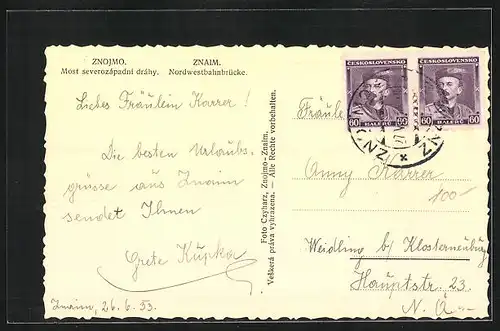 ZNOJMO.
Most severozápadní dráhy.
ZNAIM.
Nordwestbahnbrücke.
Liebes Fräulein Karrer!
Die besten Urlaubs-
grüsse aus Znaim
sendet Ihnen
Grete Kupka
Znaim, 26.6.33.
Foto Czyharz, Znojmo-Znaim.
Veškerá práva vyhrazena. — Alle Rechte vorbehalten.
ČESKOSLOVENSKO
60 HALÉŘŮ 60
ČESKOSLOVENSKO
60 HALÉŘŮ 60
Anny Karrer
100-
Weidling b/ Klosterneuburg
Hauptstr. 23.
N.Ö.